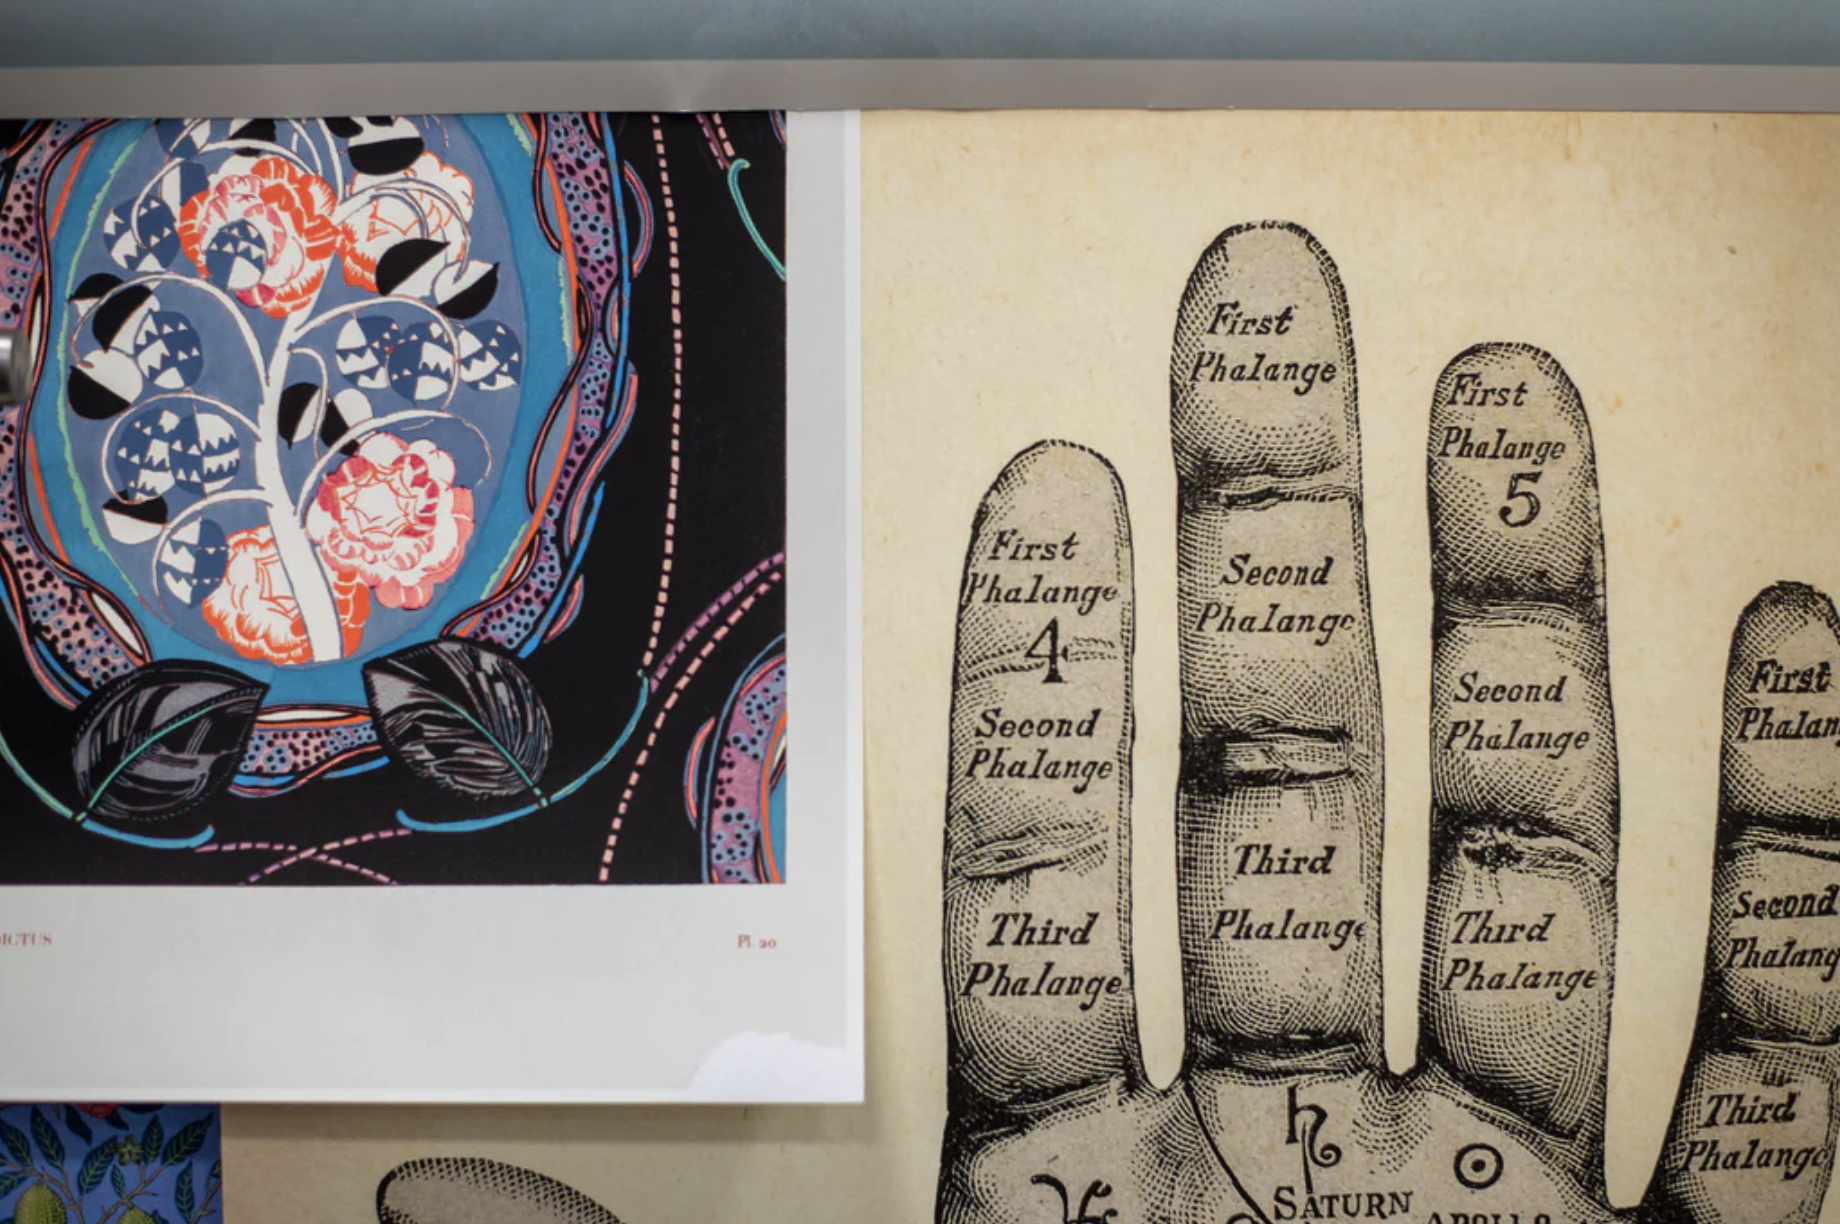 Pl. 20
First
Phalange
4
Second
Phalange
Third
Phalange
First
Phalange
Second
Phalange
Third
Phalange
First
Phalange
5
Second
Phalange
Third
Phalange
First
Phalan
Second
Phalang
Third
Phalange
♄
☉
♃
SATURN
APOLLO